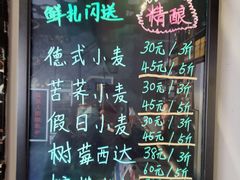 鲜扎闪送 精酿
德式小麦 30元/3斤
45元/5斤
苦荞小麦 30元/3斤
45元/5斤
假日小麦 30元/3斤
45元/5斤
树莓西达 38元/3斤
60元/5斤